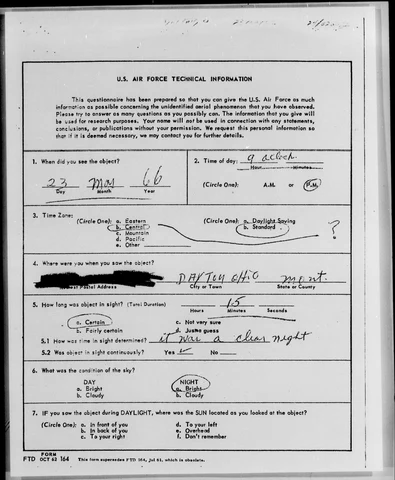 U.S. AIR FORCE TECHNICAL INFORMATION
This questionnaire has been prepared so that you can give the U.S. Air Force as much
information as possible concerning the unidentified aerial phenomenon that you have observed.
Please try to answer as many questions as you possibly can. The information that you give will
be used for research purposes. Your name will not be used in connection with any statements,
conclusions, or publications without your permission. We request this personal information so
that if it is deemed necessary, we may contact you for further details.
1. When did you see the object?
23 Mar 66
Day Month Year
2. Time of day: 9 oclock
Hour Minutes
(Circle One): A.M. or P.M.
3. Time Zone:
(Circle One): a. Eastern
b. Central
c. Mountain
d. Pacific
e. Other
(Circle One): a. Daylight Saving
b. Standard
?
4. Where were you when you saw the object?
DAYTON OHIO mont.
Nearest Postal Address City or Town State or County
5. How long was object in sight? (Total Duration) 15
Hours Minutes Seconds
a. Certain c. Not very sure
b. Fairly certain d. Just a guess
5.1 How was time in sight determined? it was a clear night
5.2 Was object in sight continuously? Yes No
6. What was the condition of the sky?
DAY NIGHT
a. Bright a. Bright
b. Cloudy b. Cloudy
7. IF you saw the object during DAYLIGHT, where was the SUN located as you looked at the object?
(Circle One): a. In front of you d. To your left
b. In back of you e. Overhead
c. To your right f. Don't remember
FORM
FTD OCT 62 164 This form supersedes FTD 164, Jul 61, which is obsolete.